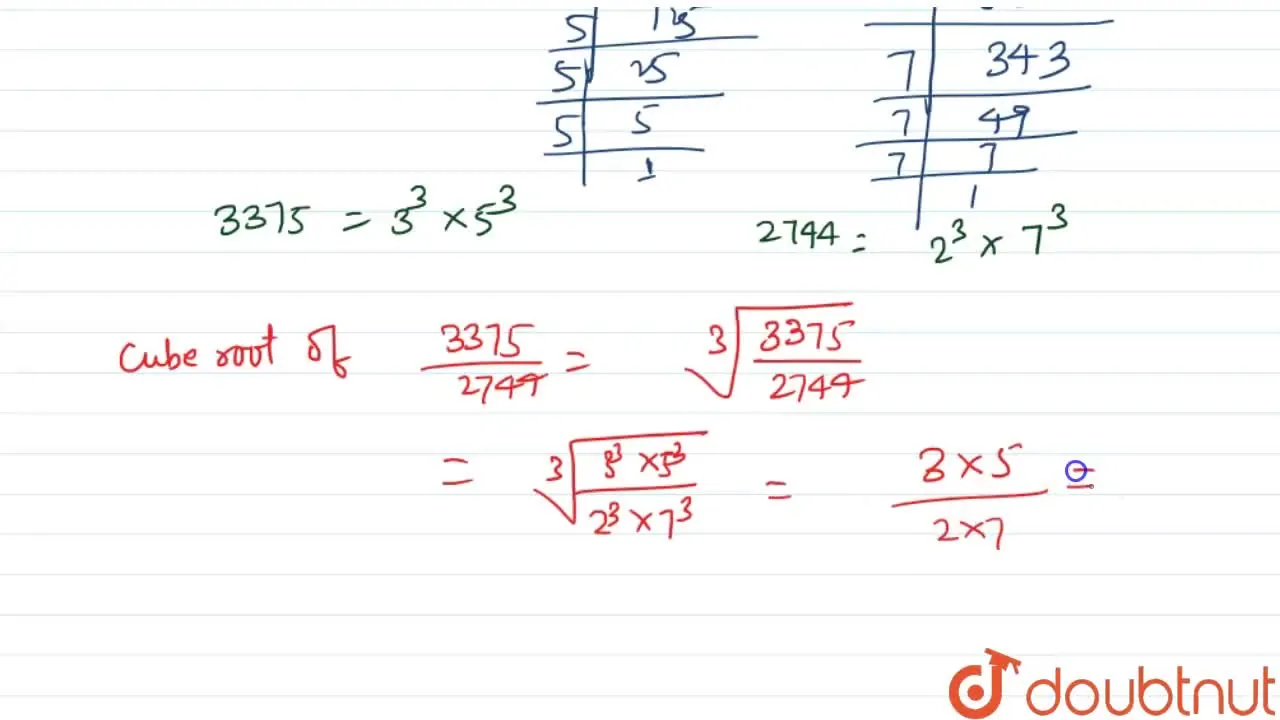 5 125
5 25
5 5
1
7 343
7 49
7 7
1
3375 = 3³ × 5³
2744 = 2³ × 7³
Cube root of 3375/2744 = ∛(3375/2744)
= ∛((3³ × 5³)/(2³ × 7³)) = (3 × 5)/(2 × 7) =
doubtnut